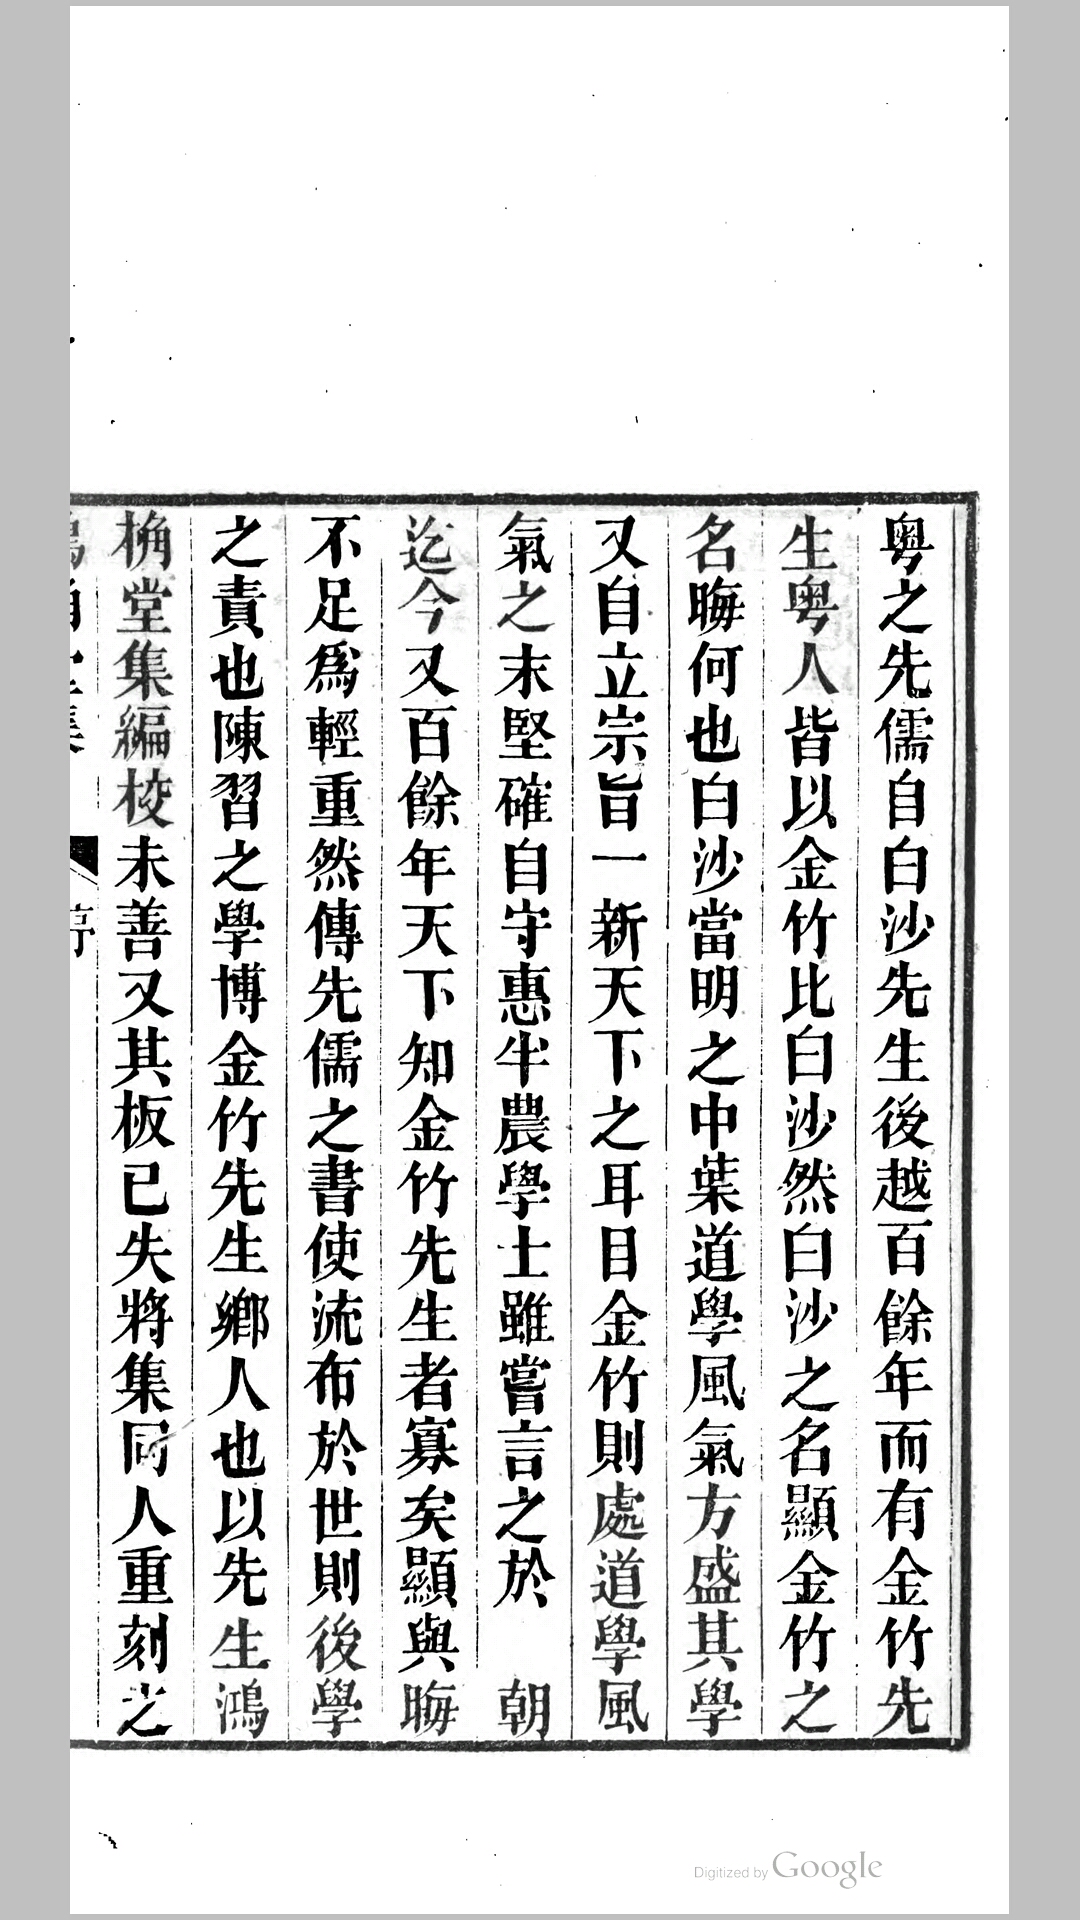 粤之先儒自白沙先生後越百餘年而有金竹先
生粤人皆以金竹比白沙然白沙之名顯金竹之
名晦何也白沙當明之中葉道學風氣方盛其學
又自立宗旨一新天下之耳目金竹則處道學風
氣之末堅確自守惠半農學士雖嘗言之於 朝
迄今又百餘年天下知金竹先生者寡矣顯與晦
不足爲輕重然傳先儒之書使流布於世則後學
之責也陳習之學博金竹先生鄉人也以先生鴻
桷堂集編校未善又其板已失將集同人重刻之
序
Digitized by Google